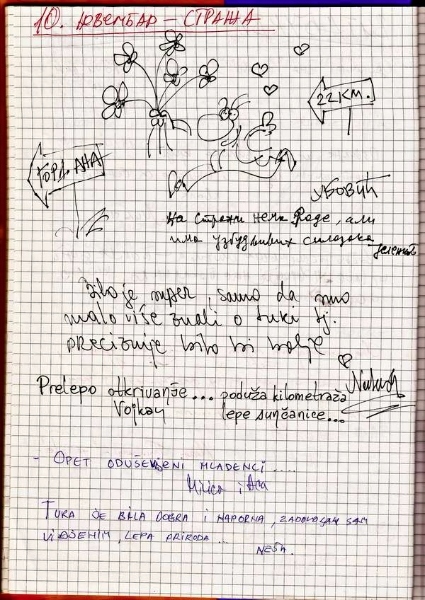 10. НОВЕМБАР - СТРАЖА
22 КМ.
ЉУБОВИЋ
На стражи нема воде, али
има узбудљивих силазака
Bilo je super, samo da smo
malo više znali o turi tj.
preciznije bilo bi bolje
Prelepo otkrivanje... poduža kilometraža
Vojkan lepe sunčanice...
- OPET ODUŠEVLJENI MLADENCI ....
Mirko i Ana
TURA JE BILA DOBRA I NAPORNA, ZADOVOLJAN SAM
VIĐENIM, LEPA PRIRODA...
NEŠA.